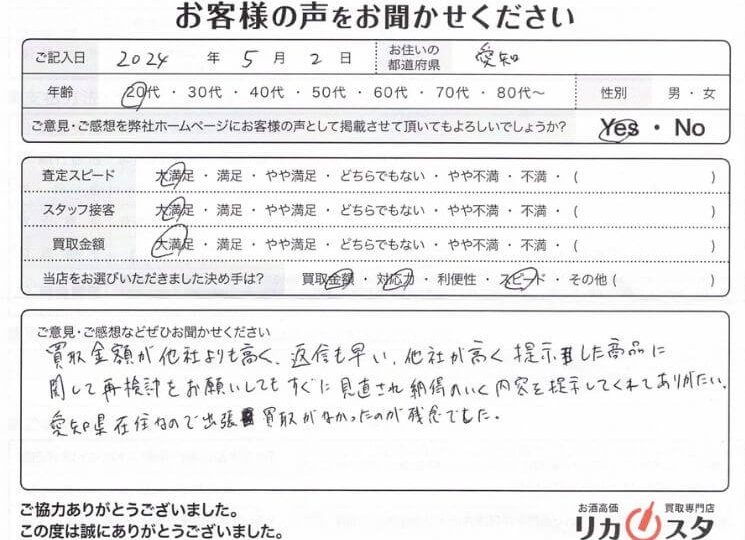 お客様の声をお聞かせください
ご記入日 2024 年 5 月 2 日 お住いの都道府県 愛知
年齢 20代・30代・40代・50代・60代・70代・80代〜 性別 男・女
ご意見・ご感想を弊社ホームページにお客様の声として掲載させて頂いてもよろしいでしょうか? Yes・No
査定スピード 大満足・満足・やや満足・どちらでもない・やや不満・不満・( )
スタッフ接客 大満足・満足・やや満足・どちらでもない・やや不満・不満・( )
買取金額 大満足・満足・やや満足・どちらでもない・やや不満・不満・( )
当店をお選びいただきました決め手は? 買取金額・対応力・利便性・スピード・その他( )
ご意見・ご感想などぜひお聞かせください
買取金額が他社よりも高く、返信も早い、他社が高く提示した商品に
関して再検討をお願いしてもすぐに見直され納得のいく内容を提示してくれてありがたい。
愛知県在住なので出張買取がなかったのが残念でした。
ご協力ありがとうございました。
この度は誠にありがとうございました。
お酒高価 買取専門店
リカスタ